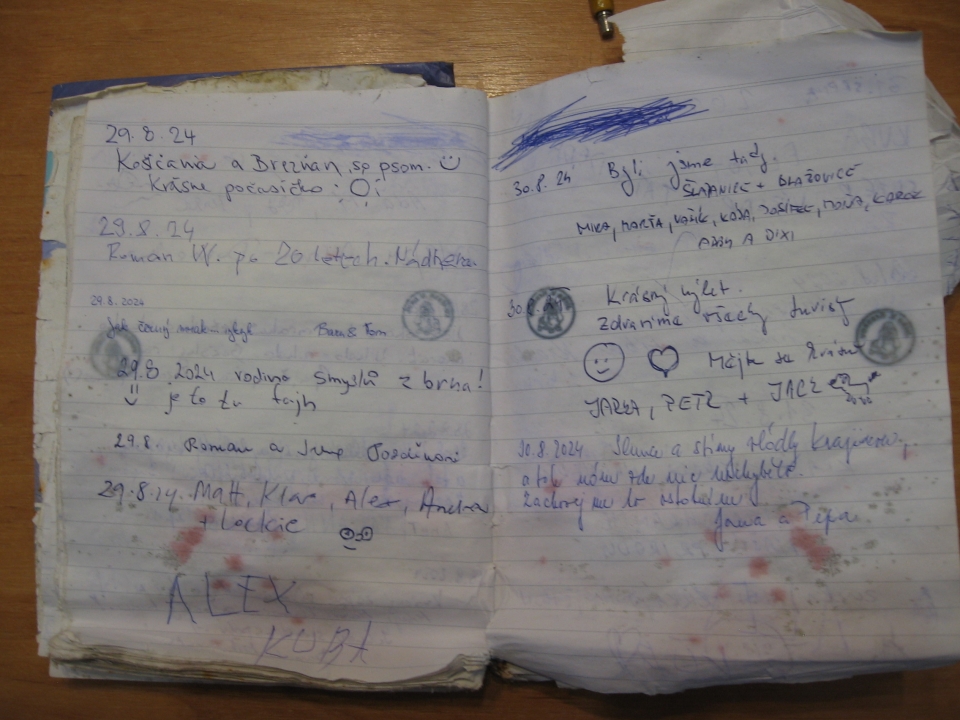 29.8.24
Košičania a Brezňan so psom.
Krásne počasíčko :
29.8.24
Roman W. po 20 letech. Nádhera
29.8.2024
Jak černý Bára & Tom
29.8 2024 rodina smyslů z brna!
je to tu fajn
29.8. Roman a
29.8.24. Matt, Klar, Alex, Andrea
+ Lockie
ALEX
KUBA
30.8.24 Byli jsme tady.
ŠLAPANICE + BLAŽOVICE
MIRA, MARŤA, VAŠÍK, KÁJA, MÁŇA, KAREL
A DIXI
Krásný výlet.
Zdravíme všechy turisty
Mějte se krásně
JARKA, PETR + JACK
30.8.2024 Slunce a stíny krajinou,
a tak nám zde nic nechybělo.
Zachovejme to
Jana a Pepa